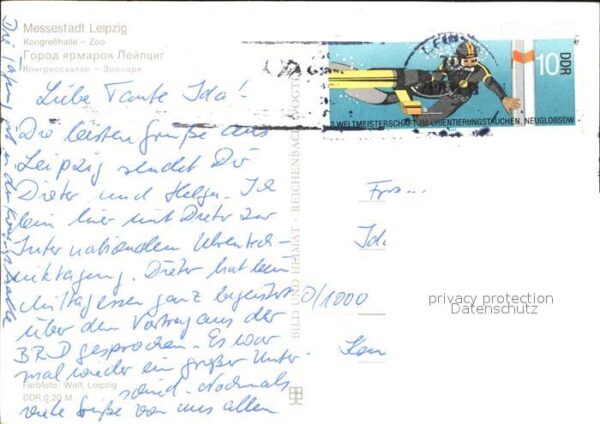 Messestadt Leipzig
Kongreßhalle – Zoo
Город ярмарок Лейпциг
Конгрессхалле – Зоопарк
Liebe Tante Ida!
Die besten Grüße aus
Leipzig sendet Dir
Dieter und Helga. Ich
bin hier mit Dieter zur
Internationalen
tagung. Dieter hat beim
Mittagessen ganz begeistert
über den Vortrag aus der
BRD gesprochen. Es war
mal wieder ein großer Unter-
schied. Nochmals
viele Grüße von uns allen
Farbfoto: Wolf, Leipzig
DDR 0,20 M
BILD UND HEIMAT · REICHENBACH
10 DDR
2. WELTMEISTERSCHAFT IM ORIENTIERUNGSTAUCHEN, NEUGLOBSOW
Ida
0/1000
privacy protection
Datenschutz